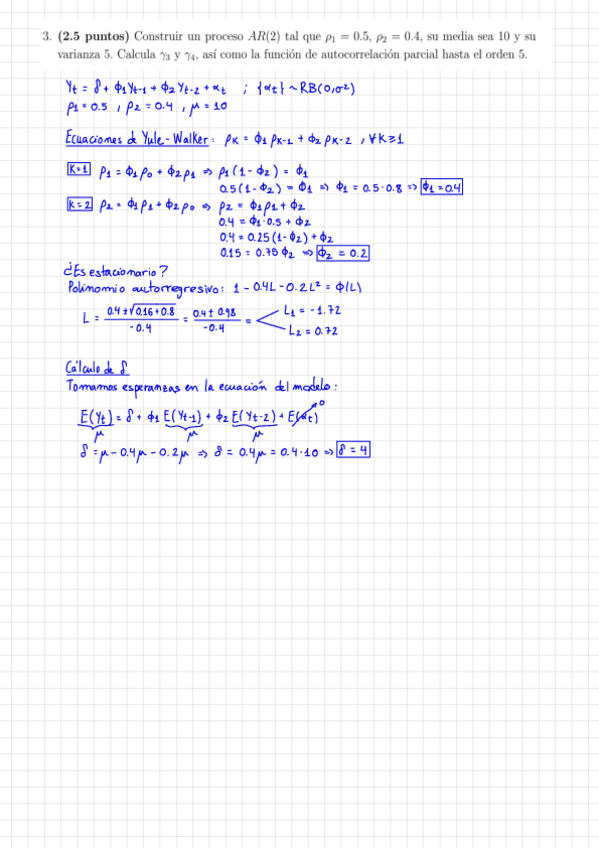 3. (2.5 puntos) Construir un proceso AR(2) tal que ρ₁ = 0.5, ρ₂ = 0.4, su media sea 10 y su
varianza 5. Calcula γ₃ y γ₄, así como la función de autocorrelación parcial hasta el orden 5.
Yt = δ + ϕ₁Yt-1 + ϕ₂Yt-2 + αt ; {αt} ~ RB(0,σ²)
ρ₁ = 0.5 , ρ₂ = 0.4 , μ = 10
Ecuaciones d Yule-Walker: ρK = ϕ₁ ρK-1 + ϕ₂ ρK-2 , ∀K≥1
K=1 ρ₁ = ϕ₁ρ₀ + ϕ₂ρ₁ ⇒ ρ₁(1-ϕ₂) = ϕ₁
0.5(1-ϕ₂) = ϕ₁ ⇒ ϕ₁ = 0.5·0.8 ⇒ ϕ₁ = 0.4
K=2 ρ₂ = ϕ₁ρ₁ + ϕ₂ρ₀ ⇒ ρ₂ = ϕ₁ρ₁ + ϕ₂
0.4 = ϕ₁·0.5 + ϕ₂
0.4 = 0.25(1-ϕ₂) + ϕ₂
0.15 = 0.75ϕ₂ ⇒ ϕ₂ = 0.2
¿Es estacionario?
Polinomio autorregresivo: 1 - 0.4L - 0.2L² = ϕ(L)
L = 0.4 ± √0.16+0.8 / -0.4 = 0.4 ± 0.98 / -0.4 = L₁ = -1.72
L₂ = 0.72
Cálculo de δ
Tomamos esperanzas en la ecuación del modelo:
E(Yt) = δ + ϕ₁ E(Yt-1) + ϕ₂ E(Yt-2) + E(αt) 0
μ μ μ
δ = μ - 0.4μ - 0.2μ ⇒ δ = 0.4μ = 0.4·10 ⇒ δ = 4